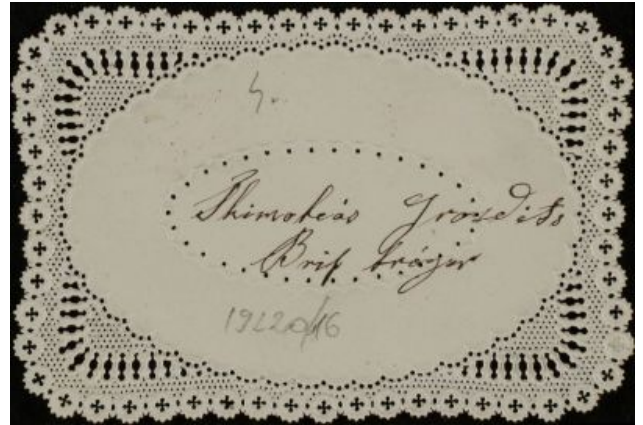 4.
Thimoteás Grosdits
Brif träger
19220/16